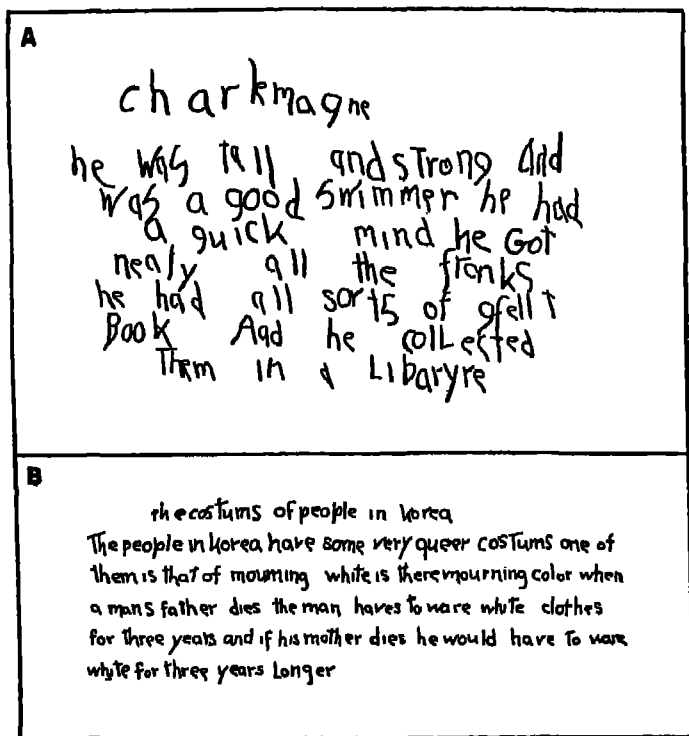 A
charkmagne
he was tall and strong and
was a good swimmer he had
a quick mind he Got
nealy all the fronks
he had all sorts of gfellt
Book Aad he collected
Them in a Libaryre
B
the costums of people in korea
The people in korea have some very queer costums one of
them is that of mourning white is there mourning color when
a mans father dies the man haves to ware white clothes
for three years and if his mother dies he would have to ware
whyte for three years Longer